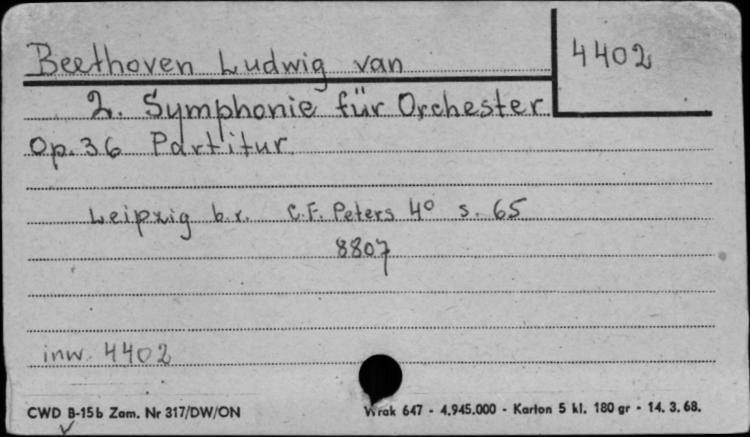 Beethoven Ludwig van
4402
2. Symphonie für Orchester.
Op. 36 Partitur.
Leipzig b.r. C.F. Peters 4° s. 65
8807
inw. 4402
CWD B-15b Zam. Nr 317/DW/ON
Wrak 647 - 4.945.000 - Karton 5 kl. 180 gr - 14. 3. 68.